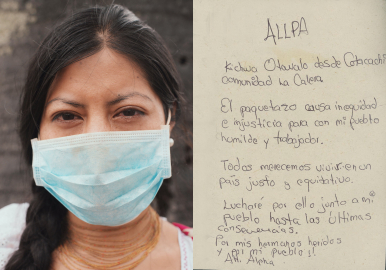 ALLPA
Kichwa Otavalo desde Cotacachi
comunidad La Calera
El paquetazo causa inequidad
e injusticia para con mi pueblo
humilde y trabajador.
Todos merecemos vivir en un
país justo y equitativo.
Lucharé por ello junto a mi
pueblo hasta las últimas
consecuencias.
Por mis hermanos heridos
y por mi pueblo!!
Att.